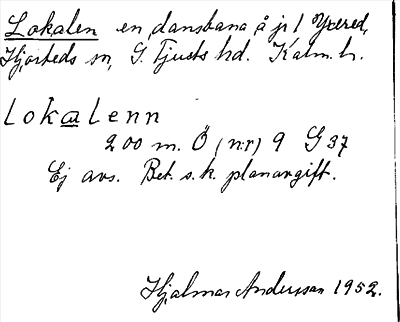 Lokalen en dansbana å jr 1 Yxered,
Hjorteds sn, S. Tjusts hd. Kalm. l.
Lokalenn
200 m. Ö (n:r) 9 G 37
Ej avs. Bet. s.k. planavgift.
Hjalmar Andersson 1952.